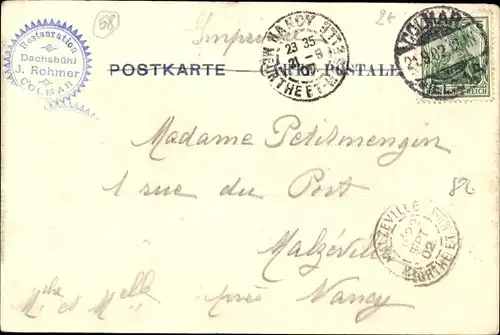 58
2k
Restauration
Dachsbühl
J. Rohmer
COLMAR
Imprimé
NANCY
23 35
21 9
02
MEURTHE ET M
COLMAR
21.9.02
REICH
POSTKARTE
POSTALE
Madame Petitmengin
1 rue du Port
82
Malzéville
MALZEVILLE
SEPT
02
MEURTHE ET
près Nancy
Mche et Melle